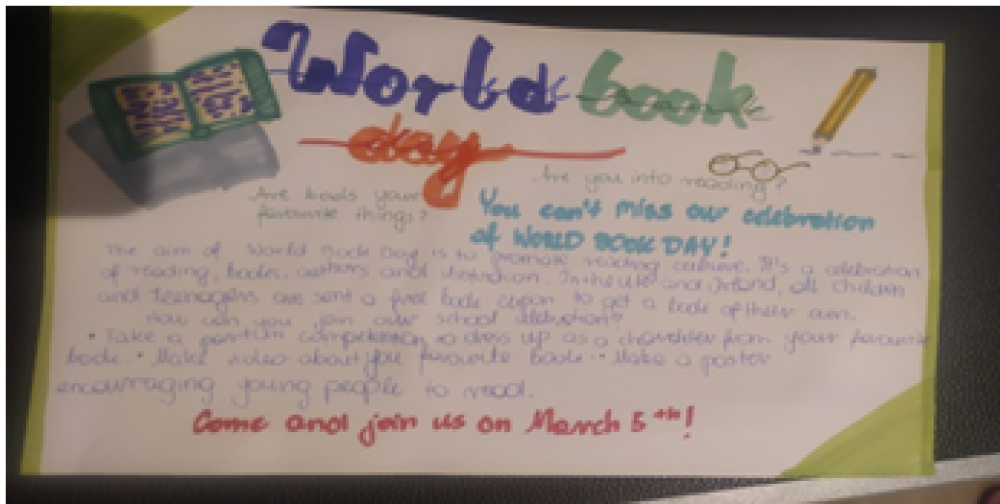 World book
day
Are you into reading?
Are books your
favourite things?
You can't miss our celebration
of WORLD BOOK DAY!
The aim of World Book Day is to promote reading culture. It's a celebration
of reading, books, authors and. In the UK and Ireland, all children
and teenagers are sent a free book to get a book of their own.
How can you join our school celebration?
• Take a part in competition to dress up as a from your favourite
book. • Make video about you favourite book. • Make a poster
encouraging young people to read.
Come and join us on March 5th!